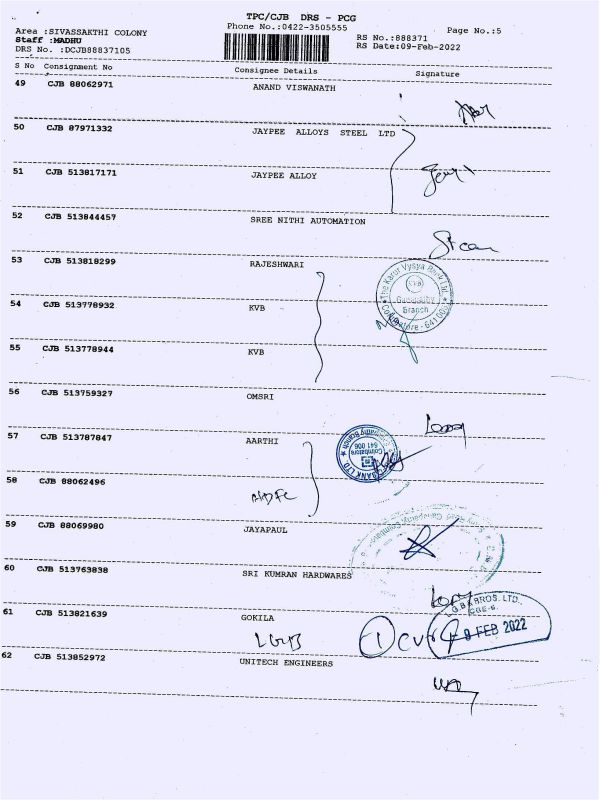 TPC/CJB DRS - PCG
Phone No.:0422-3505555
Page No.:5
Area :SIVASSAKTHI COLONY
Staff :MADHU
DRS No. :DCJB88837105
RS No.:888371
RS Date:09-Feb-2022
S No Consignment No Consignee Details Signature
49 CJB 88062971 ANAND VISWANATH
50 CJB 87971332 JAYPEE ALLOYS STEEL LTD
51 CJB 513817171 JAYPEE ALLOY
52 CJB 513844457 SREE NITHI AUTOMATION
53 CJB 513818299 RAJESHWARI
The Karur Vysya Bank Ltd.
KVB
Ganapathy
Branch
Coimbatore - 641 006
54 CJB 513778932 KVB
55 CJB 513778944 KVB
56 CJB 513759327 OMSRI
57 CJB 513787847 AARTHI
BANK LTD.
Ganapathy Branch
Coimbatore
641 006
58 CJB 88062496
HDFC
59 CJB 88069980 JAYAPAUL
60 CJB 513763838 SRI KUMRAN HARDWARES
61 CJB 513821639 GOKILA
LGB
1
G.B.&BROS. LTD.,
CBE-6.
9 FEB 2022
62 CJB 513852972 UNITECH ENGINEERS